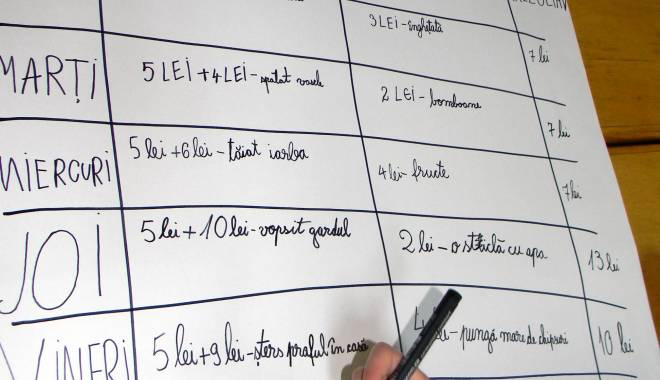 3 LEI - înghețată
7 lei
MARȚI
5 LEI + 4 LEI - spălat vasele
2 LEI - bomboane
7 lei
MIERCURI
5 lei + 6 lei - tăiat iarba
4 lei - fructe
7 lei
JOI
5 lei + 10 lei - vopsit gardul
2 lei - o sticlă cu apa
13 lei
VINERI
5 lei + 9 lei - șters praful în casă
4 lei - pungă mare de chipsuri
10 lei